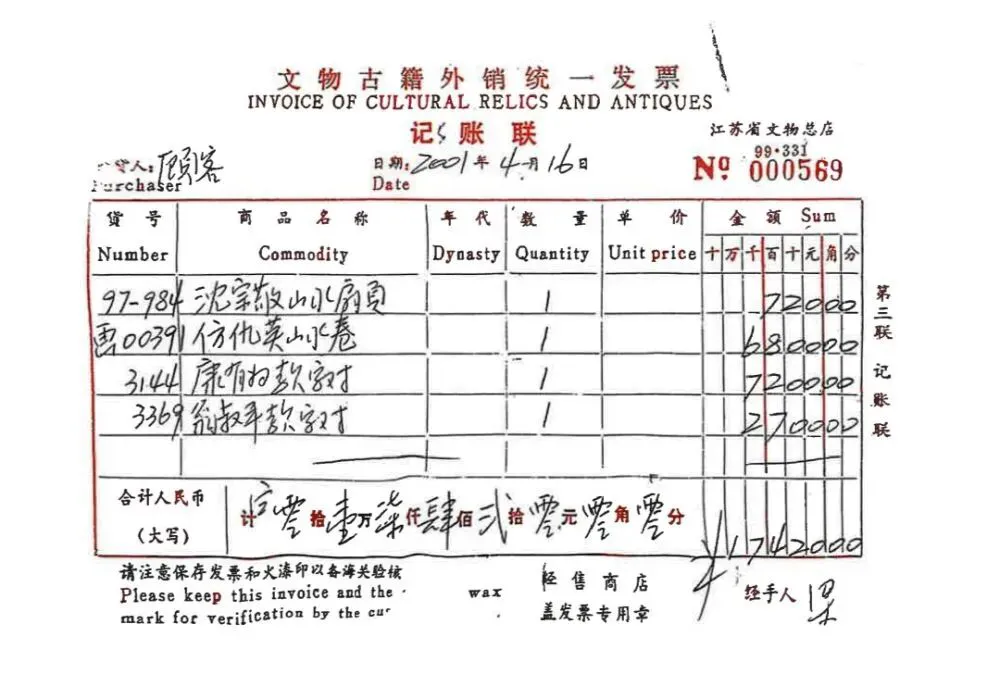 文物古籍外销统一发票
INVOICE OF CULTURAL RELICS AND ANTIQUES
记账联
江苏省文物总店
99·331
Nº 000569
货人: 顾客
Purchaser
日期: 2001年4月16日
Date
货号 商品名称 年代 数量 单价 金额 Sum
Number Commodity Dynasty Quantity Unit price 十万千百十元角分
97-984 沈宗敬山水扇页 1 72000
画00391 仿仇英山水卷 1 680000
3144 康有为款字对 1 720000
3369 翁叔平款字对 1 270000
合计人民币 计 零拾壹万柒仟肆佰贰拾零元零角零分
(大写) ¥1742000
请注意保存发票和火漆印以备海关验核
Please keep this invoice and the wax
mark for verification by the cu
经售商店
盖发票专用章
经手人
第三联 记账联